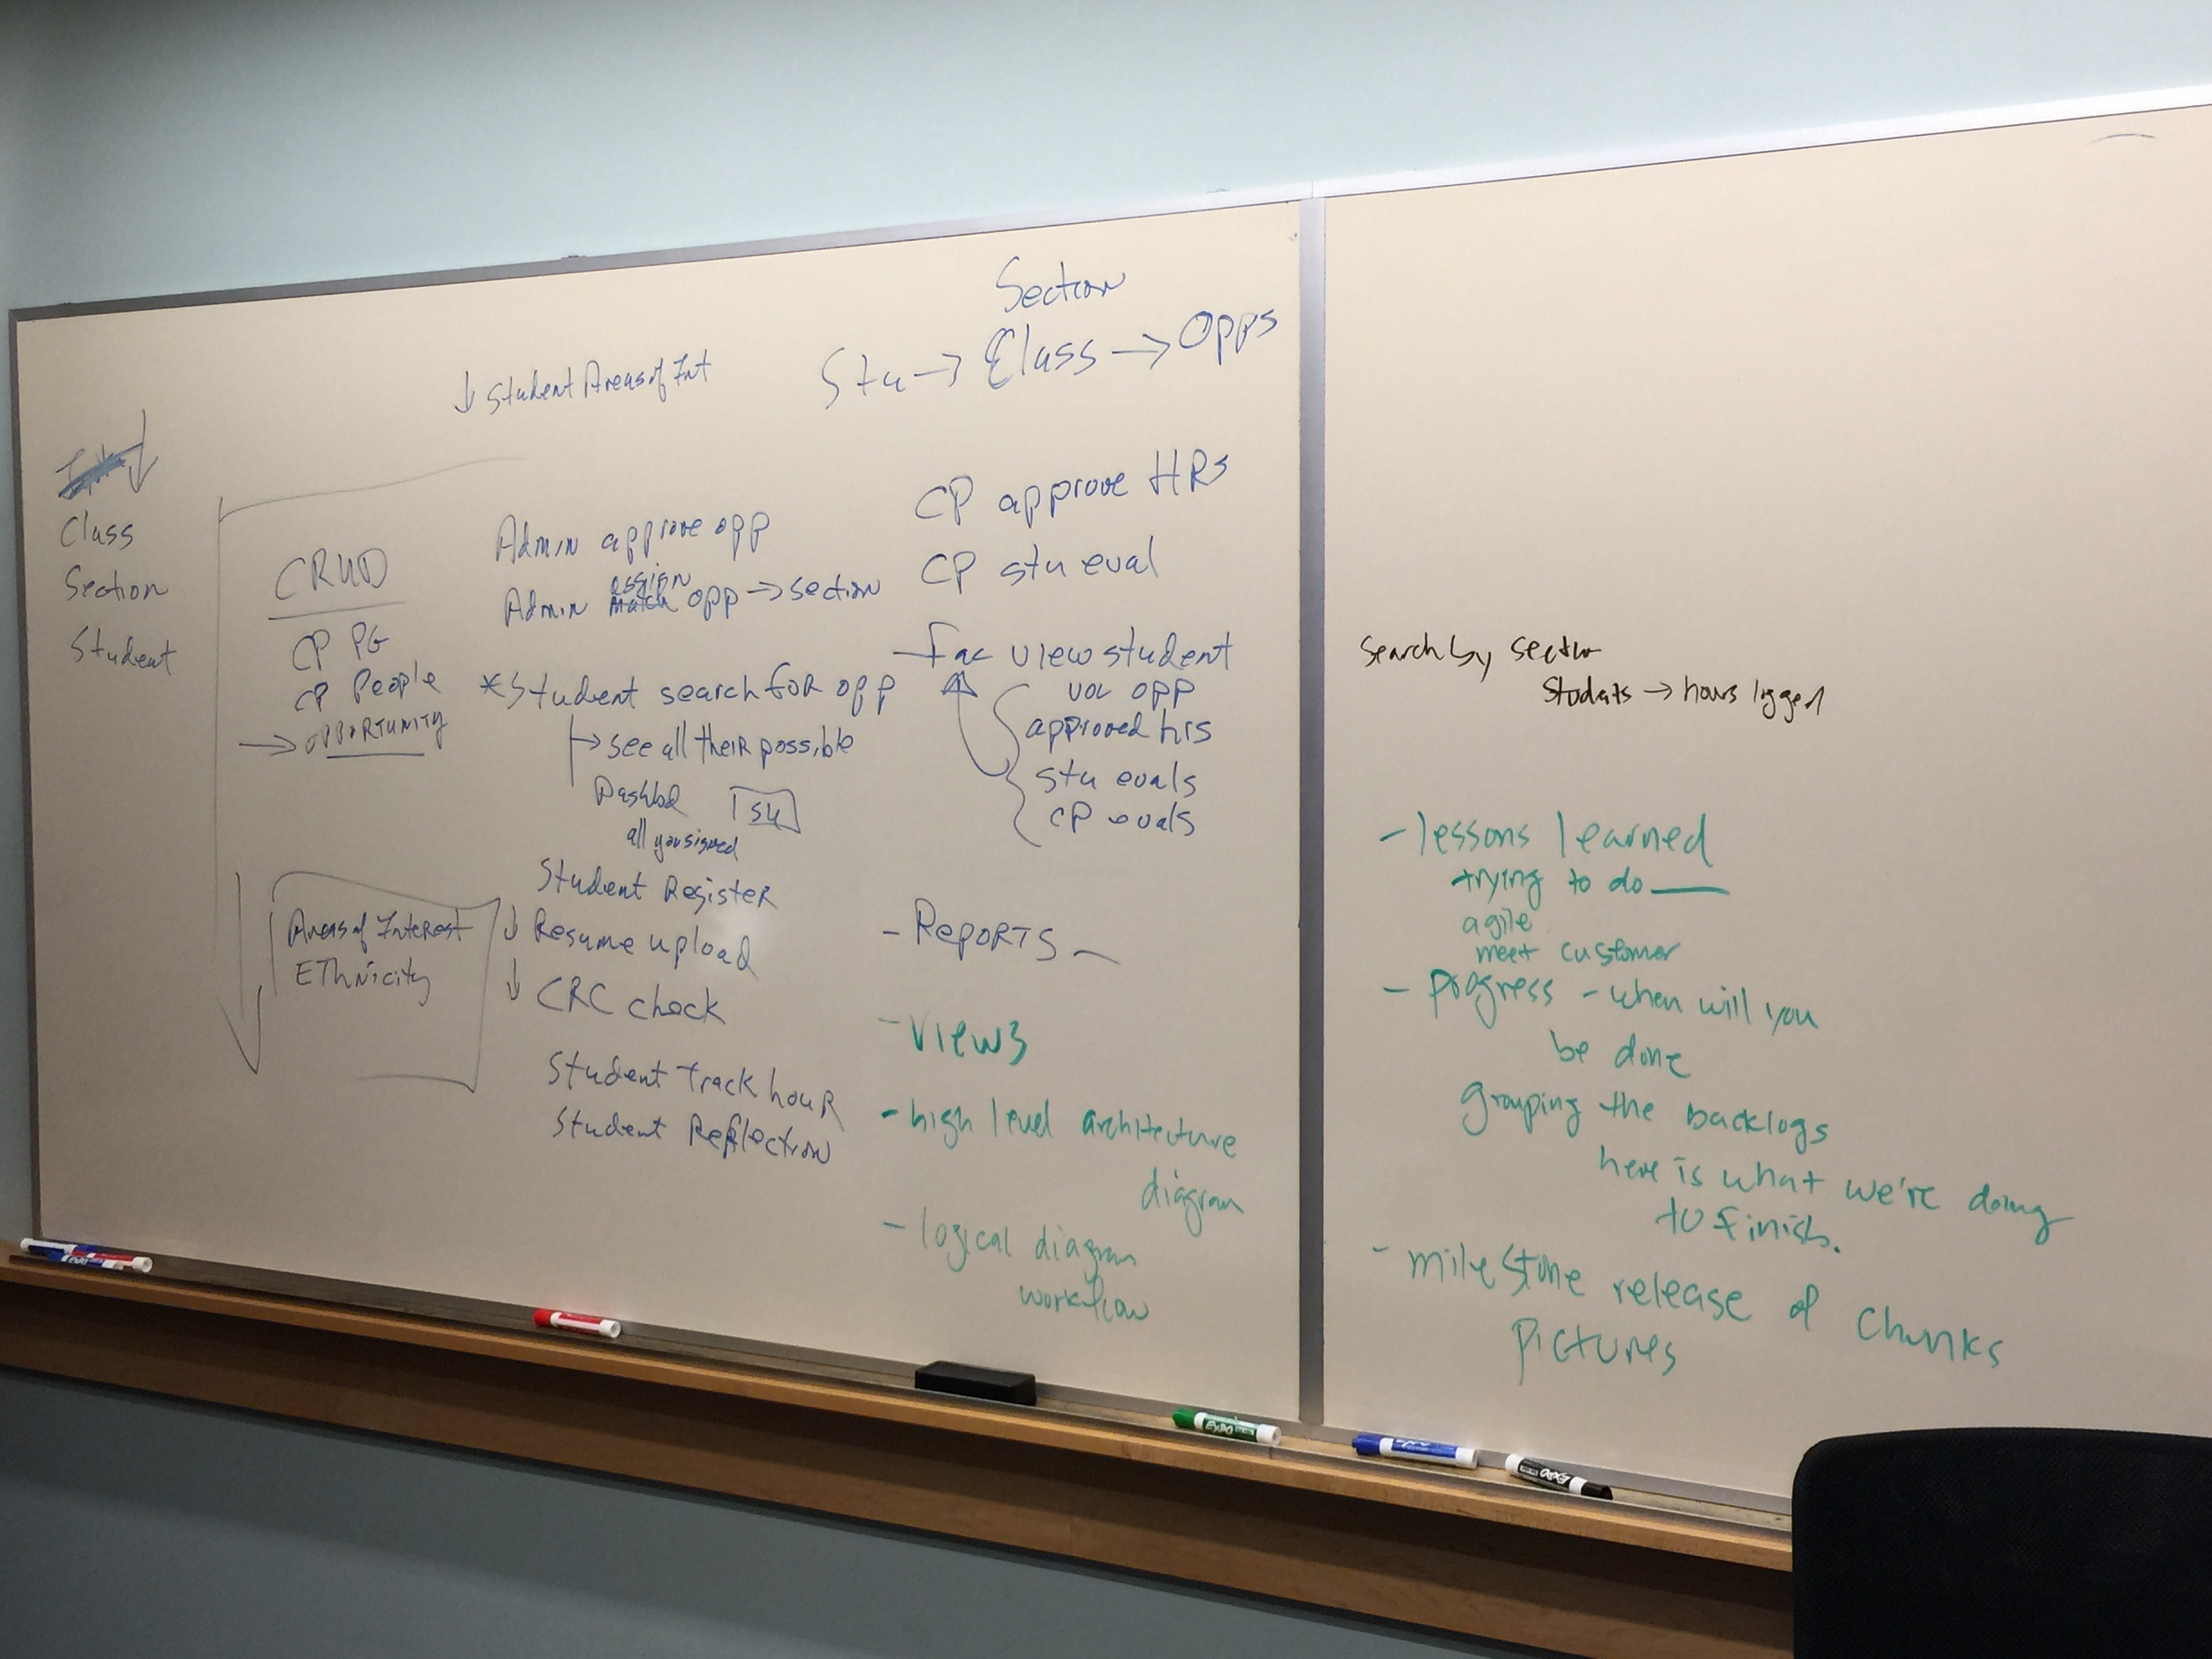 Section
Stu → Class → Opps
↓ Student Areas of Int
Class
Section
Student
CRUD
CP PG
CP People
→ OPPORTUNITY
Areas of Interest
EThnicity
Admin approve opp
assign
Admin match opp → section
*Student search for opp
→ see all their possible
Dashbd
all you signed
Student Register
↓ Resume upload
↓ CRC check
Student Track hour
Student Reflection
CP approve HRs
CP stu eval
- fac view student
vol opp
approved hrs
stu evals
CP evals
- Reports -
- Views
- high level architecture
diagram
- logical diagram
workflow
Search by section
Students → hours logged
- lessons learned
trying to do ___
agile
meet customer
- progress - when will you
be done
grouping the backlogs
here is what we're doing
to finish.
- milestone release of chunks
pictures
EXPO
EXPO